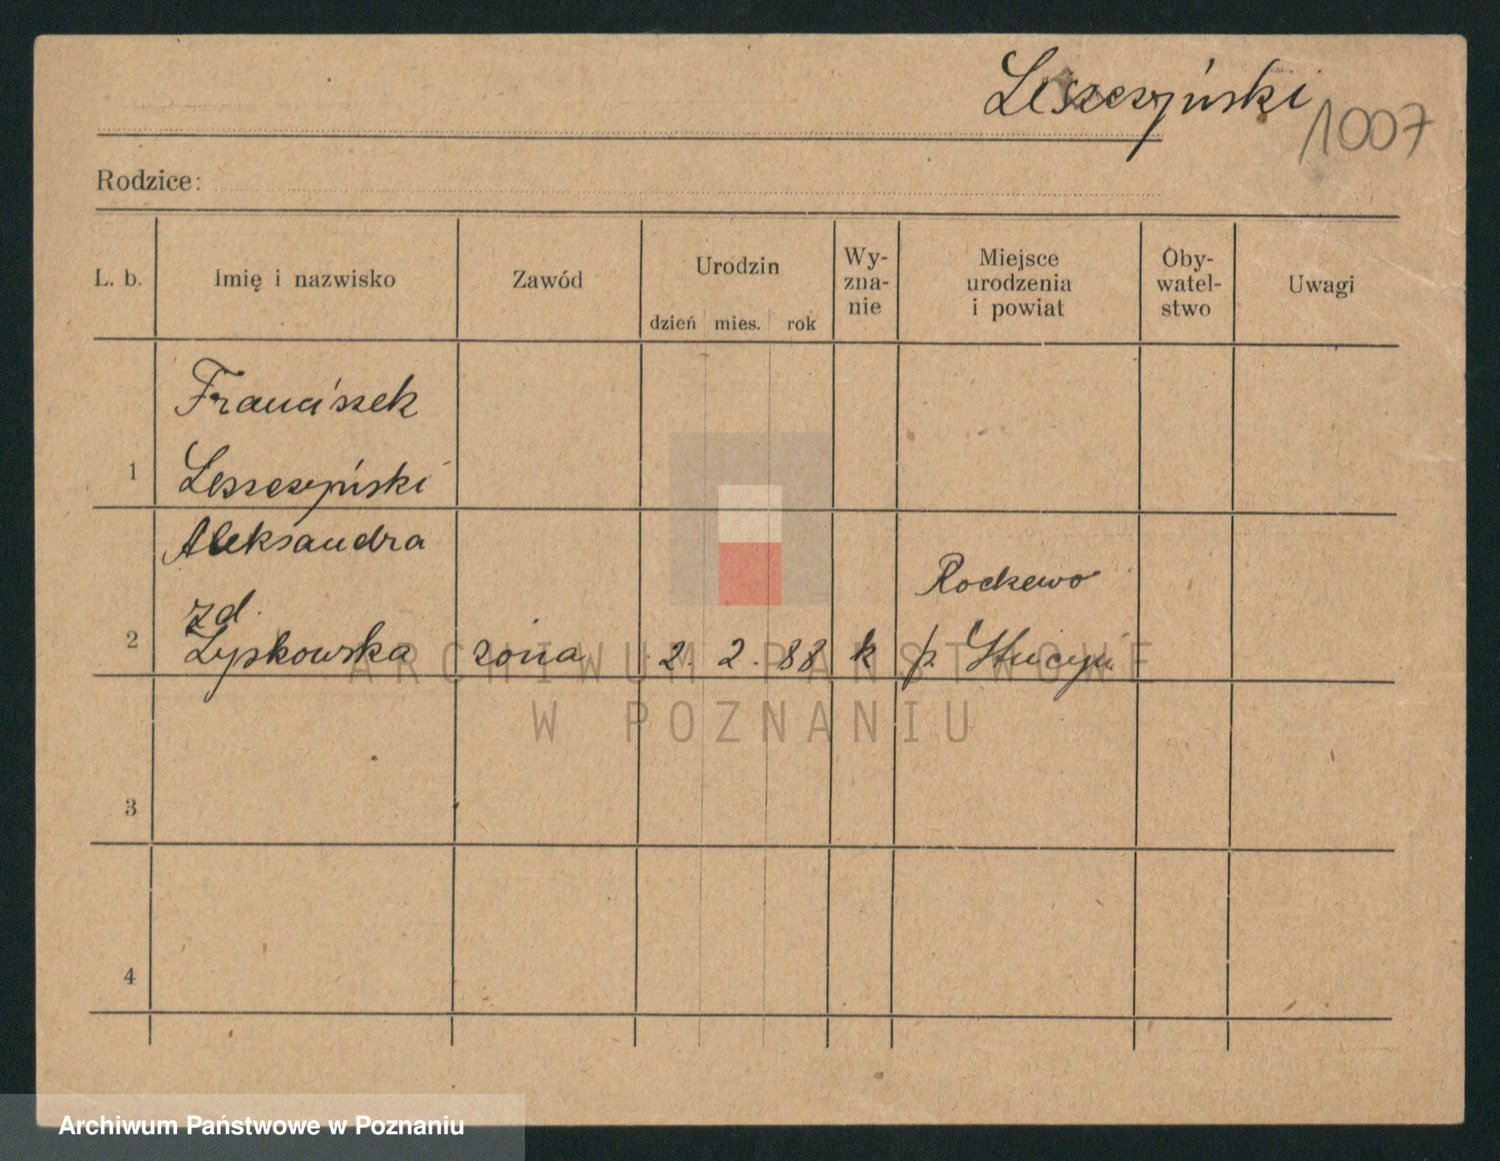 Leszczyński
1007
Rodzice:
L. b.
Imię i nazwisko
Zawód
Urodzin
dzień mies. rok
Wy-
zna-
nie
Miejsce
urodzenia
i powiat
Oby-
watel-
stwo
Uwagi
Franciszek
1 Leszczyński
Aleksandra
zd.
2 Lypkowska żona 2. 2. 88 k
3
4
ARCHIWUM PAŃSTWOWE
W POZNANIU
Archiwum Państwowe w Poznaniu